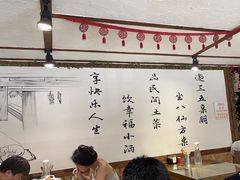 邀三五桌朋
坐八仙方桌
品民间土菜
饮幸福小酒
享快乐人生